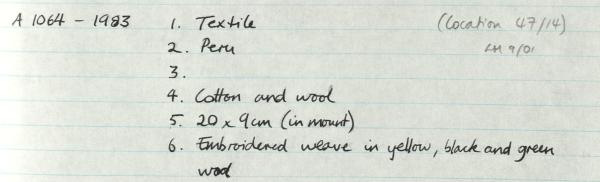 A 1064 - 1983 1. Textile (Location 47/14)
2. Peru LH 9/01
3.
4. Cotton and wool
5. 20 x 9cm (in mount)
6. Embroidered weave in yellow, black and green
wool